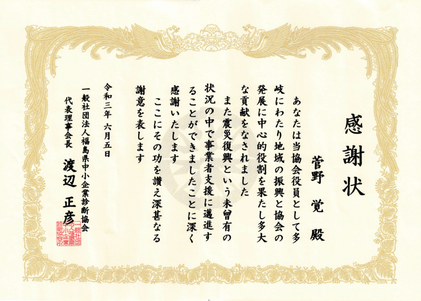 感謝状
菅野 覚 殿
あなたは当協会役員として多
岐にわたり地域の振興と協会の
発展に中心的役割を果たし多大
な貢献をなされました
また震災復興という未曾有の
状況の中で事業者支援に邁進す
ることができましたことに深く
感謝いたします
ここにその功を讃え深甚なる
謝意を表します
令和三年 六月五日
一般社団法人福島県中小企業診断協会
代表理事会長 渡辺 正彦